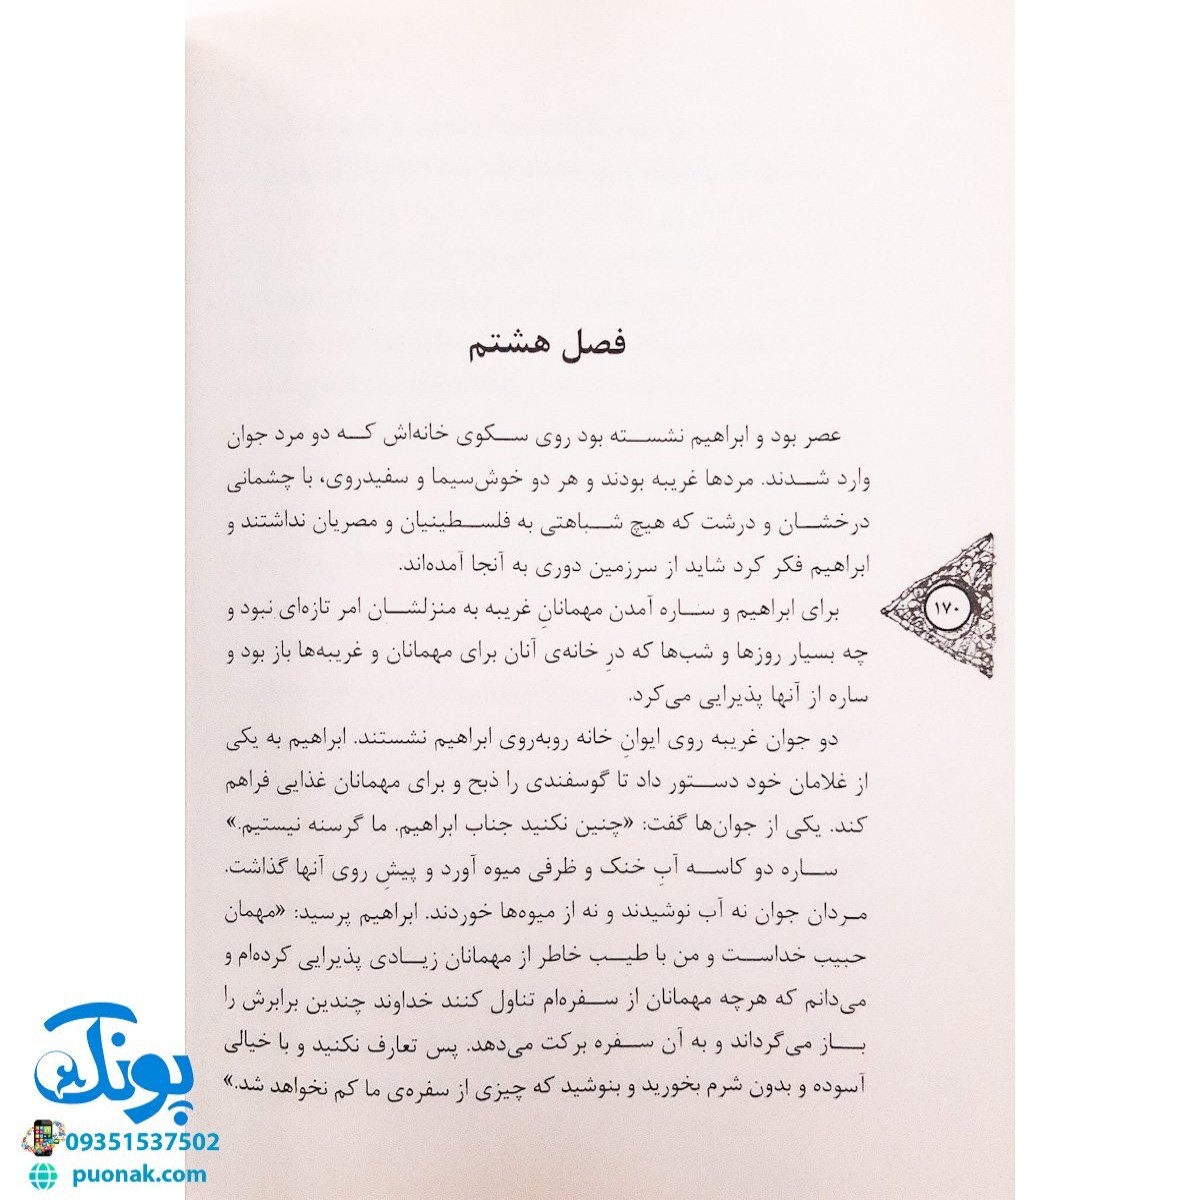 فصل هشتم
عصر بود و ابراهیم نشسته بود روی سکوی خانه‌اش که دو مرد جوان
وارد شدند. مردها غریبه بودند و هر دو خوش‌سیما و سفیدروی، با چشمانی
درخشان و درشت که هیچ شباهتی به فلسطینیان و مصریان نداشتند و
ابراهیم فکر کرد شاید از سرزمین دوری به آنجا آمده‌اند.
برای ابراهیم و ساره آمدن مهمانانِ غریبه به منزلشان امر تازه‌ای نبود و
چه بسیار روزها و شب‌ها که درِ خانه‌ی آنان برای مهمانان و غریبه‌ها باز بود و
ساره از آنها پذیرایی می‌کرد.
۱۷۰
دو جوان غریبه روی ایوانِ خانه روبه‌روی ابراهیم نشستند. ابراهیم به یکی
از غلامان خود دستور داد تا گوسفندی را ذبح و برای مهمانان غذایی فراهم
کند. یکی از جوان‌ها گفت: «چنین نکنید جناب ابراهیم. ما گرسنه نیستیم.»
ساره دو کاسه آبِ خنک و ظرفی میوه آورد و پیشِ روی آنها گذاشت.
مردان جوان نه آب نوشیدند و نه از میوه‌ها خوردند. ابراهیم پرسید: «مهمان
حبیب خداست و من با طیب خاطر از مهمانان زیادی پذیرایی کرده‌ام و
می‌دانم که هرچه مهمانان از سفره‌ام تناول کنند خداوند چندین برابرش را
باز می‌گرداند و به آن سفره برکت می‌دهد. پس تعارف نکنید و با خیالی
آسوده و بدون شرم بخورید و بنوشید که چیزی از سفره‌ی ما کم نخواهد شد.»
پونک
09351537502
puonak.com